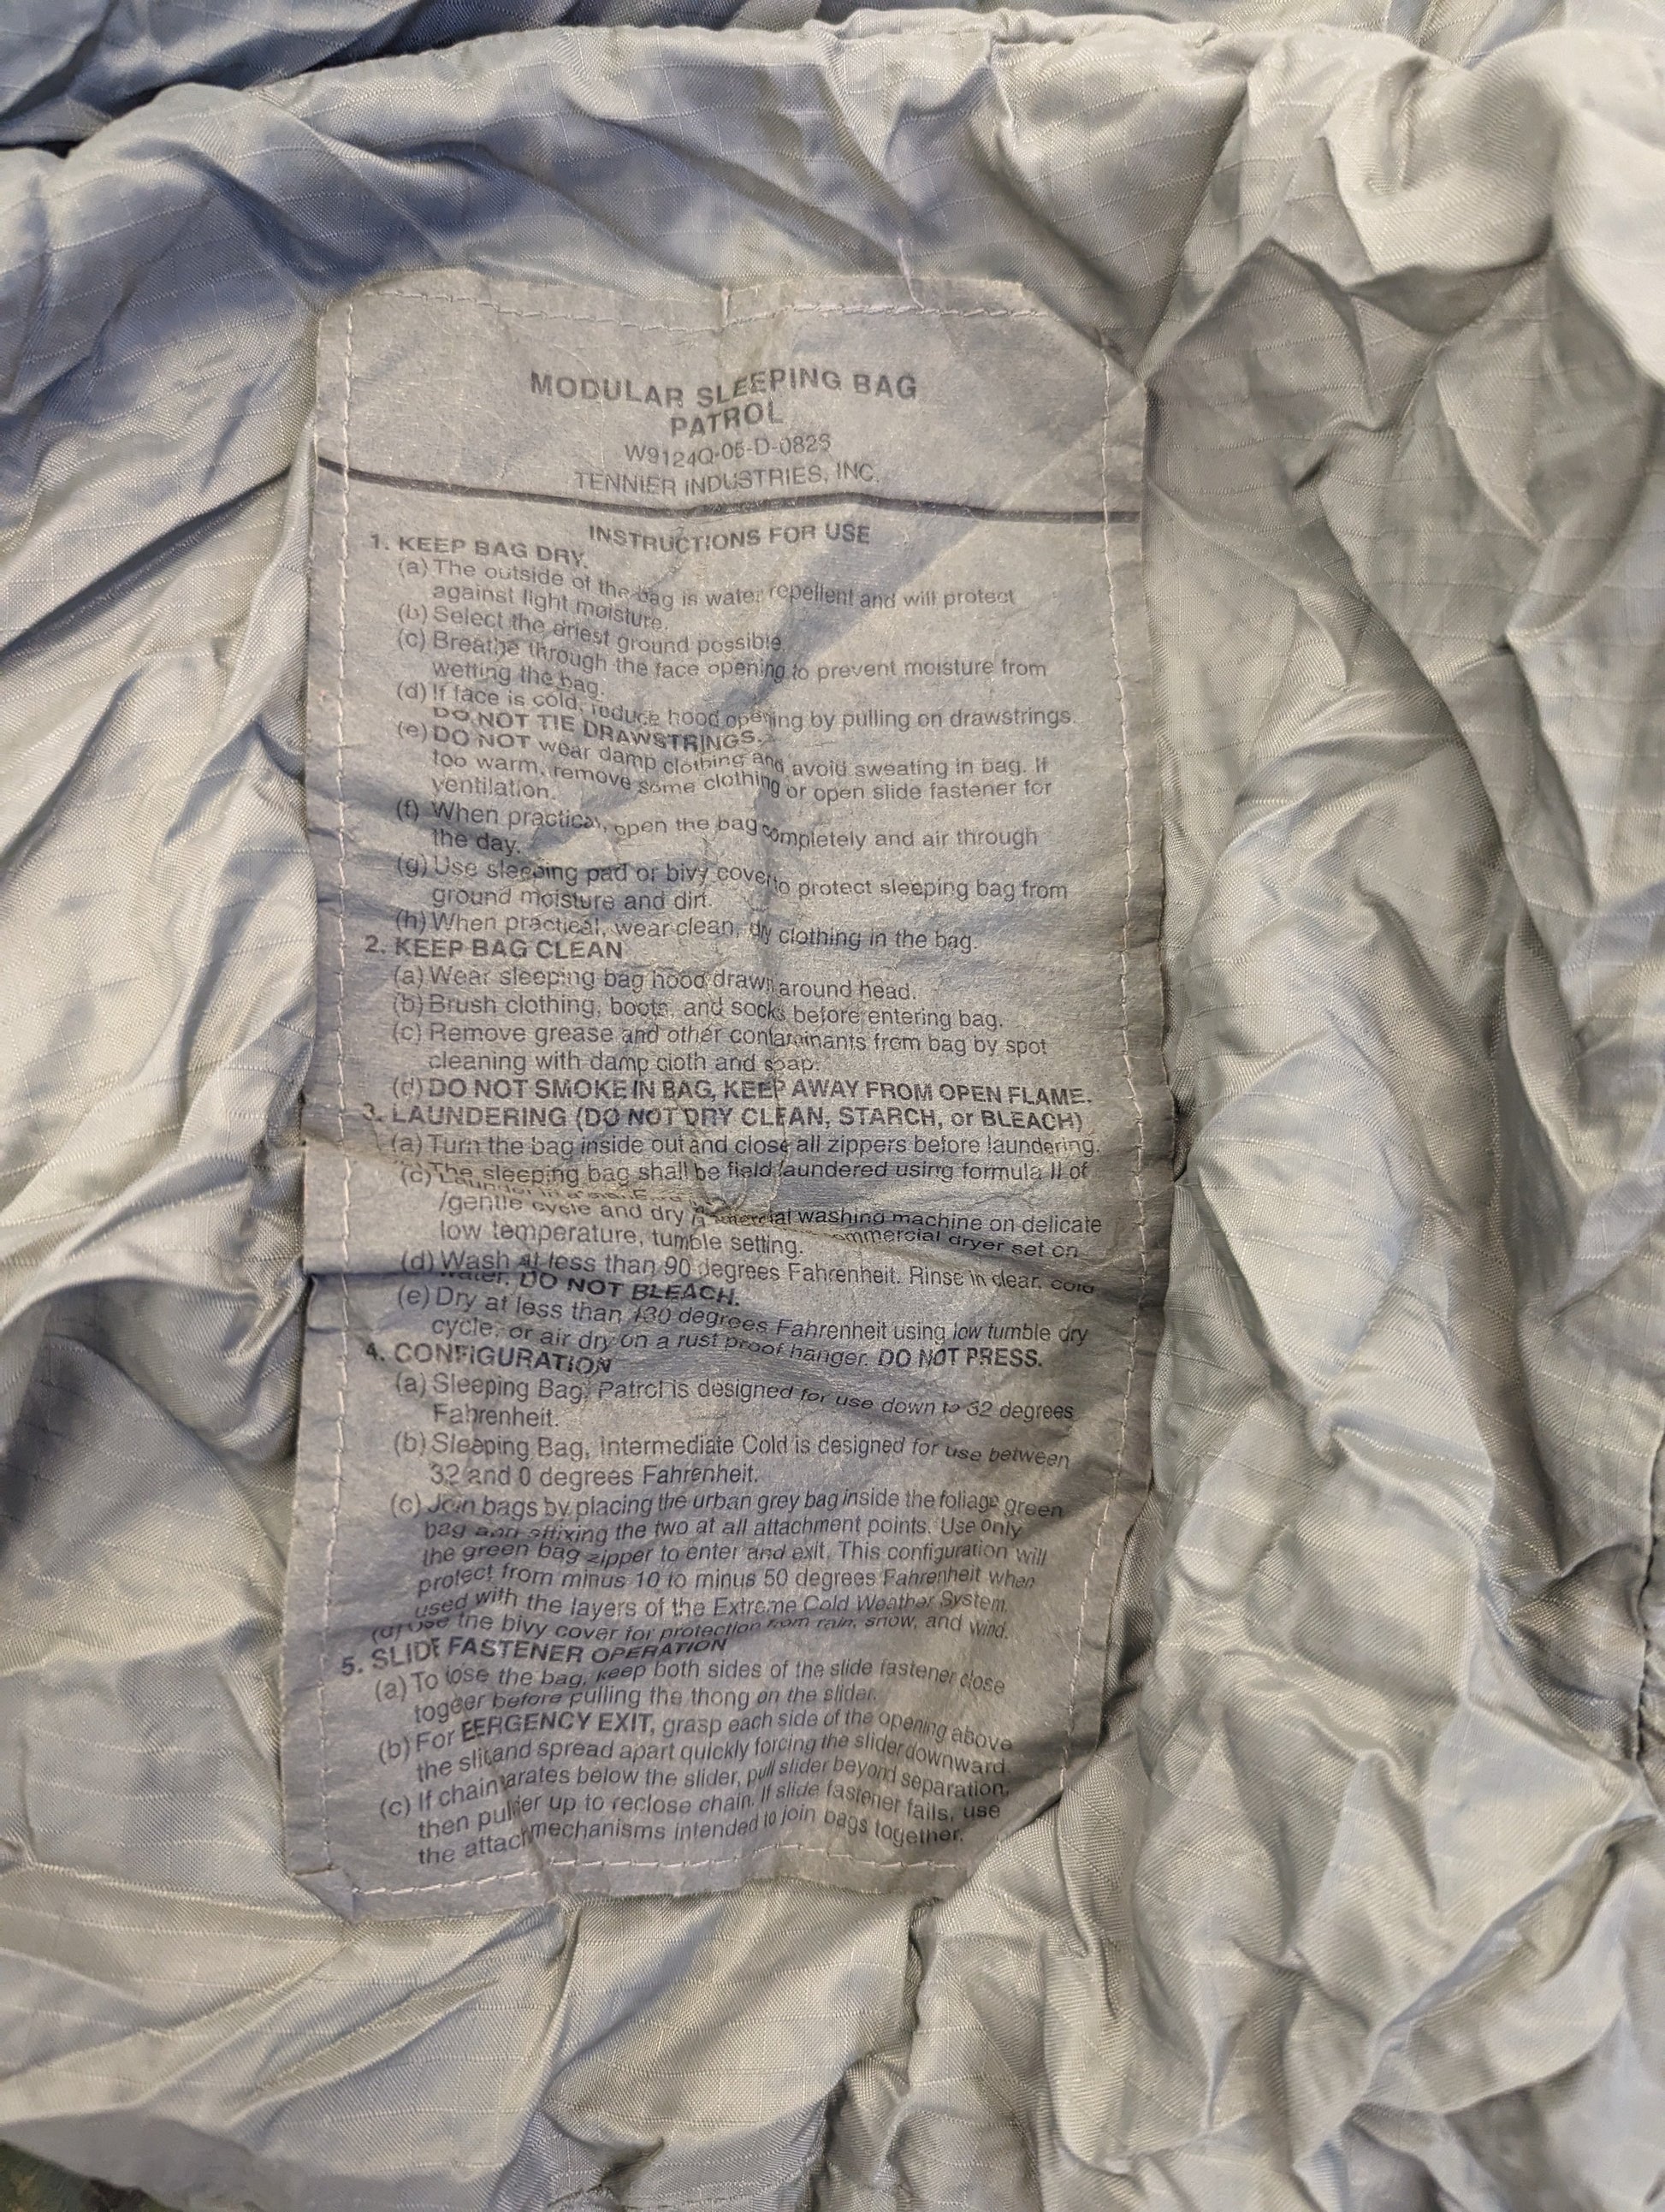 MODULAR SLEEPING BAG
PATROL
W9124Q-05-D-0825
TENNIER INDUSTRIES, INC.
INSTRUCTIONS FOR USE
1. KEEP BAG DRY.
(a) The outside of the bag is water repellent and will protect
against light moisture.
(b) Select the driest ground possible.
(c) Breathe through the face opening to prevent moisture from
wetting the bag.
(d) If face is cold, reduce hood opening by pulling on drawstrings.
DO NOT TIE DRAWSTRINGS.
(e) DO NOT wear damp clothing and avoid sweating in bag. If
too warm, remove some clothing or open slide fastener for
ventilation.
(f) When practical, open the bag completely and air through
the day.
(g) Use sleeping pad or bivy cover to protect sleeping bag from
ground moisture and dirt.
(h) When practical, wear clean, dry clothing in the bag.
2. KEEP BAG CLEAN
(a) Wear sleeping bag hood drawn around head.
(b) Brush clothing, boots, and socks before entering bag.
(c) Remove grease and other contaminants from bag by spot
cleaning with damp cloth and soap.
(d) DO NOT SMOKE IN BAG, KEEP AWAY FROM OPEN FLAME.
3. LAUNDERING (DO NOT DRY CLEAN, STARCH, or BLEACH)
(a) Turn the bag inside out and close all zippers before laundering.
The sleeping bag shall be field laundered using formula II of
(c) washing machine on delicate
/gentle cycle and dry commercial dryer set on
low temperature, tumble setting.
(d) Wash at less than 90 degrees Fahrenheit. Rinse in clear, cold
water. DO NOT BLEACH.
(e) Dry at less than 130 degrees Fahrenheit using low tumble dry
cycle, or air dry on a rust proof hanger. DO NOT PRESS.
4. CONFIGURATION
(a) Sleeping Bag, Patrol is designed for use down to 32 degrees
Fahrenheit.
(b) Sleeping Bag, Intermediate Cold is designed for use between
32 and 0 degrees Fahrenheit.
(c) Join bags by placing the urban grey bag inside the foliage green
bag and affixing the two at all attachment points. Use only
the green bag zipper to enter and exit. This configuration will
protect from minus 10 to minus 50 degrees Fahrenheit when
used with the layers of the Extreme Cold Weather System.
(d) Use the bivy cover for protection from rain, snow, and wind.
5. SLIDE FASTENER OPERATION
(a) To lose the bag, keep both sides of the slide fastener close
togeer before pulling the thong on the slider.
(b) For EERGENCY EXIT, grasp each side of the opening above
the sli and spread apart quickly forcing the slider downward.
(c) If chain arates below the slider, pull slider beyond separation,
then pul er up to reclose chain. If slide fastener fails, use
the attach mechanisms intended to join bags together.